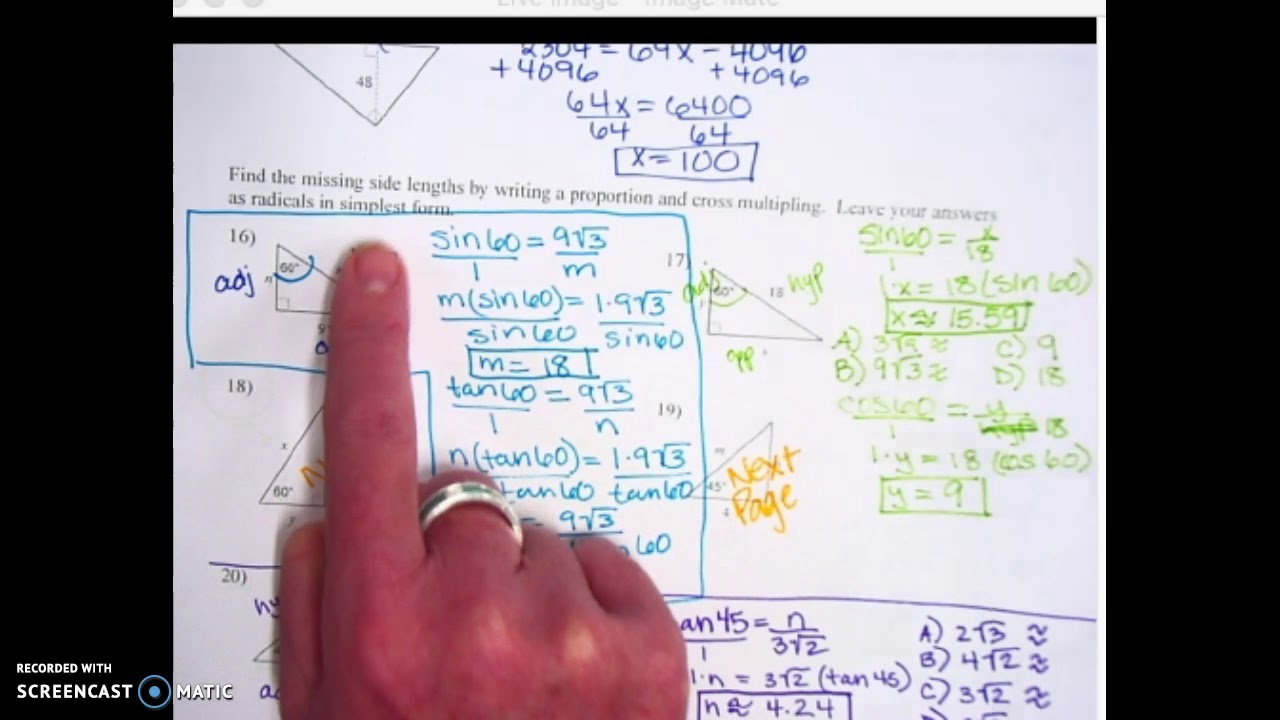 Live Image - Image Mate
2304 = 64x - 4096
+4096 +4096
48
64x = 6400
64 64
x = 100
Find the missing side lengths by writing a proportion and cross multipling. Leave your answers
as radicals in simplest form.
16)
60°
adj
n
9
sin60 = 9√3
1 m
m(sin60) = 1·9√3
sin60 sin60
m = 18
tan60 = 9√3
1 n
n(tan60) = 1·9√3
tan60 tan60
= 9√3
60
17)
adj
60°
18
hyp
opp
sin60 = x
1 18
1·x = 18(sin60)
x ≈ 15.59
A) 3√9 ≈ C) 9
B) 9√3 ≈ D) 18
cos60 = y
1 18
1·y = 18 (cos60)
y = 9
18)
x
60°
y
N
19)
m
45°
Next
Page
20)
hy
ad
an45 = n
1 3√2
1·n = 3√2 (tan45)
n ≈ 4.24
A) 2√3 ≈
B) 4√2 ≈
C) 3√2 ≈
RECORDED WITH
SCREENCAST MATIC